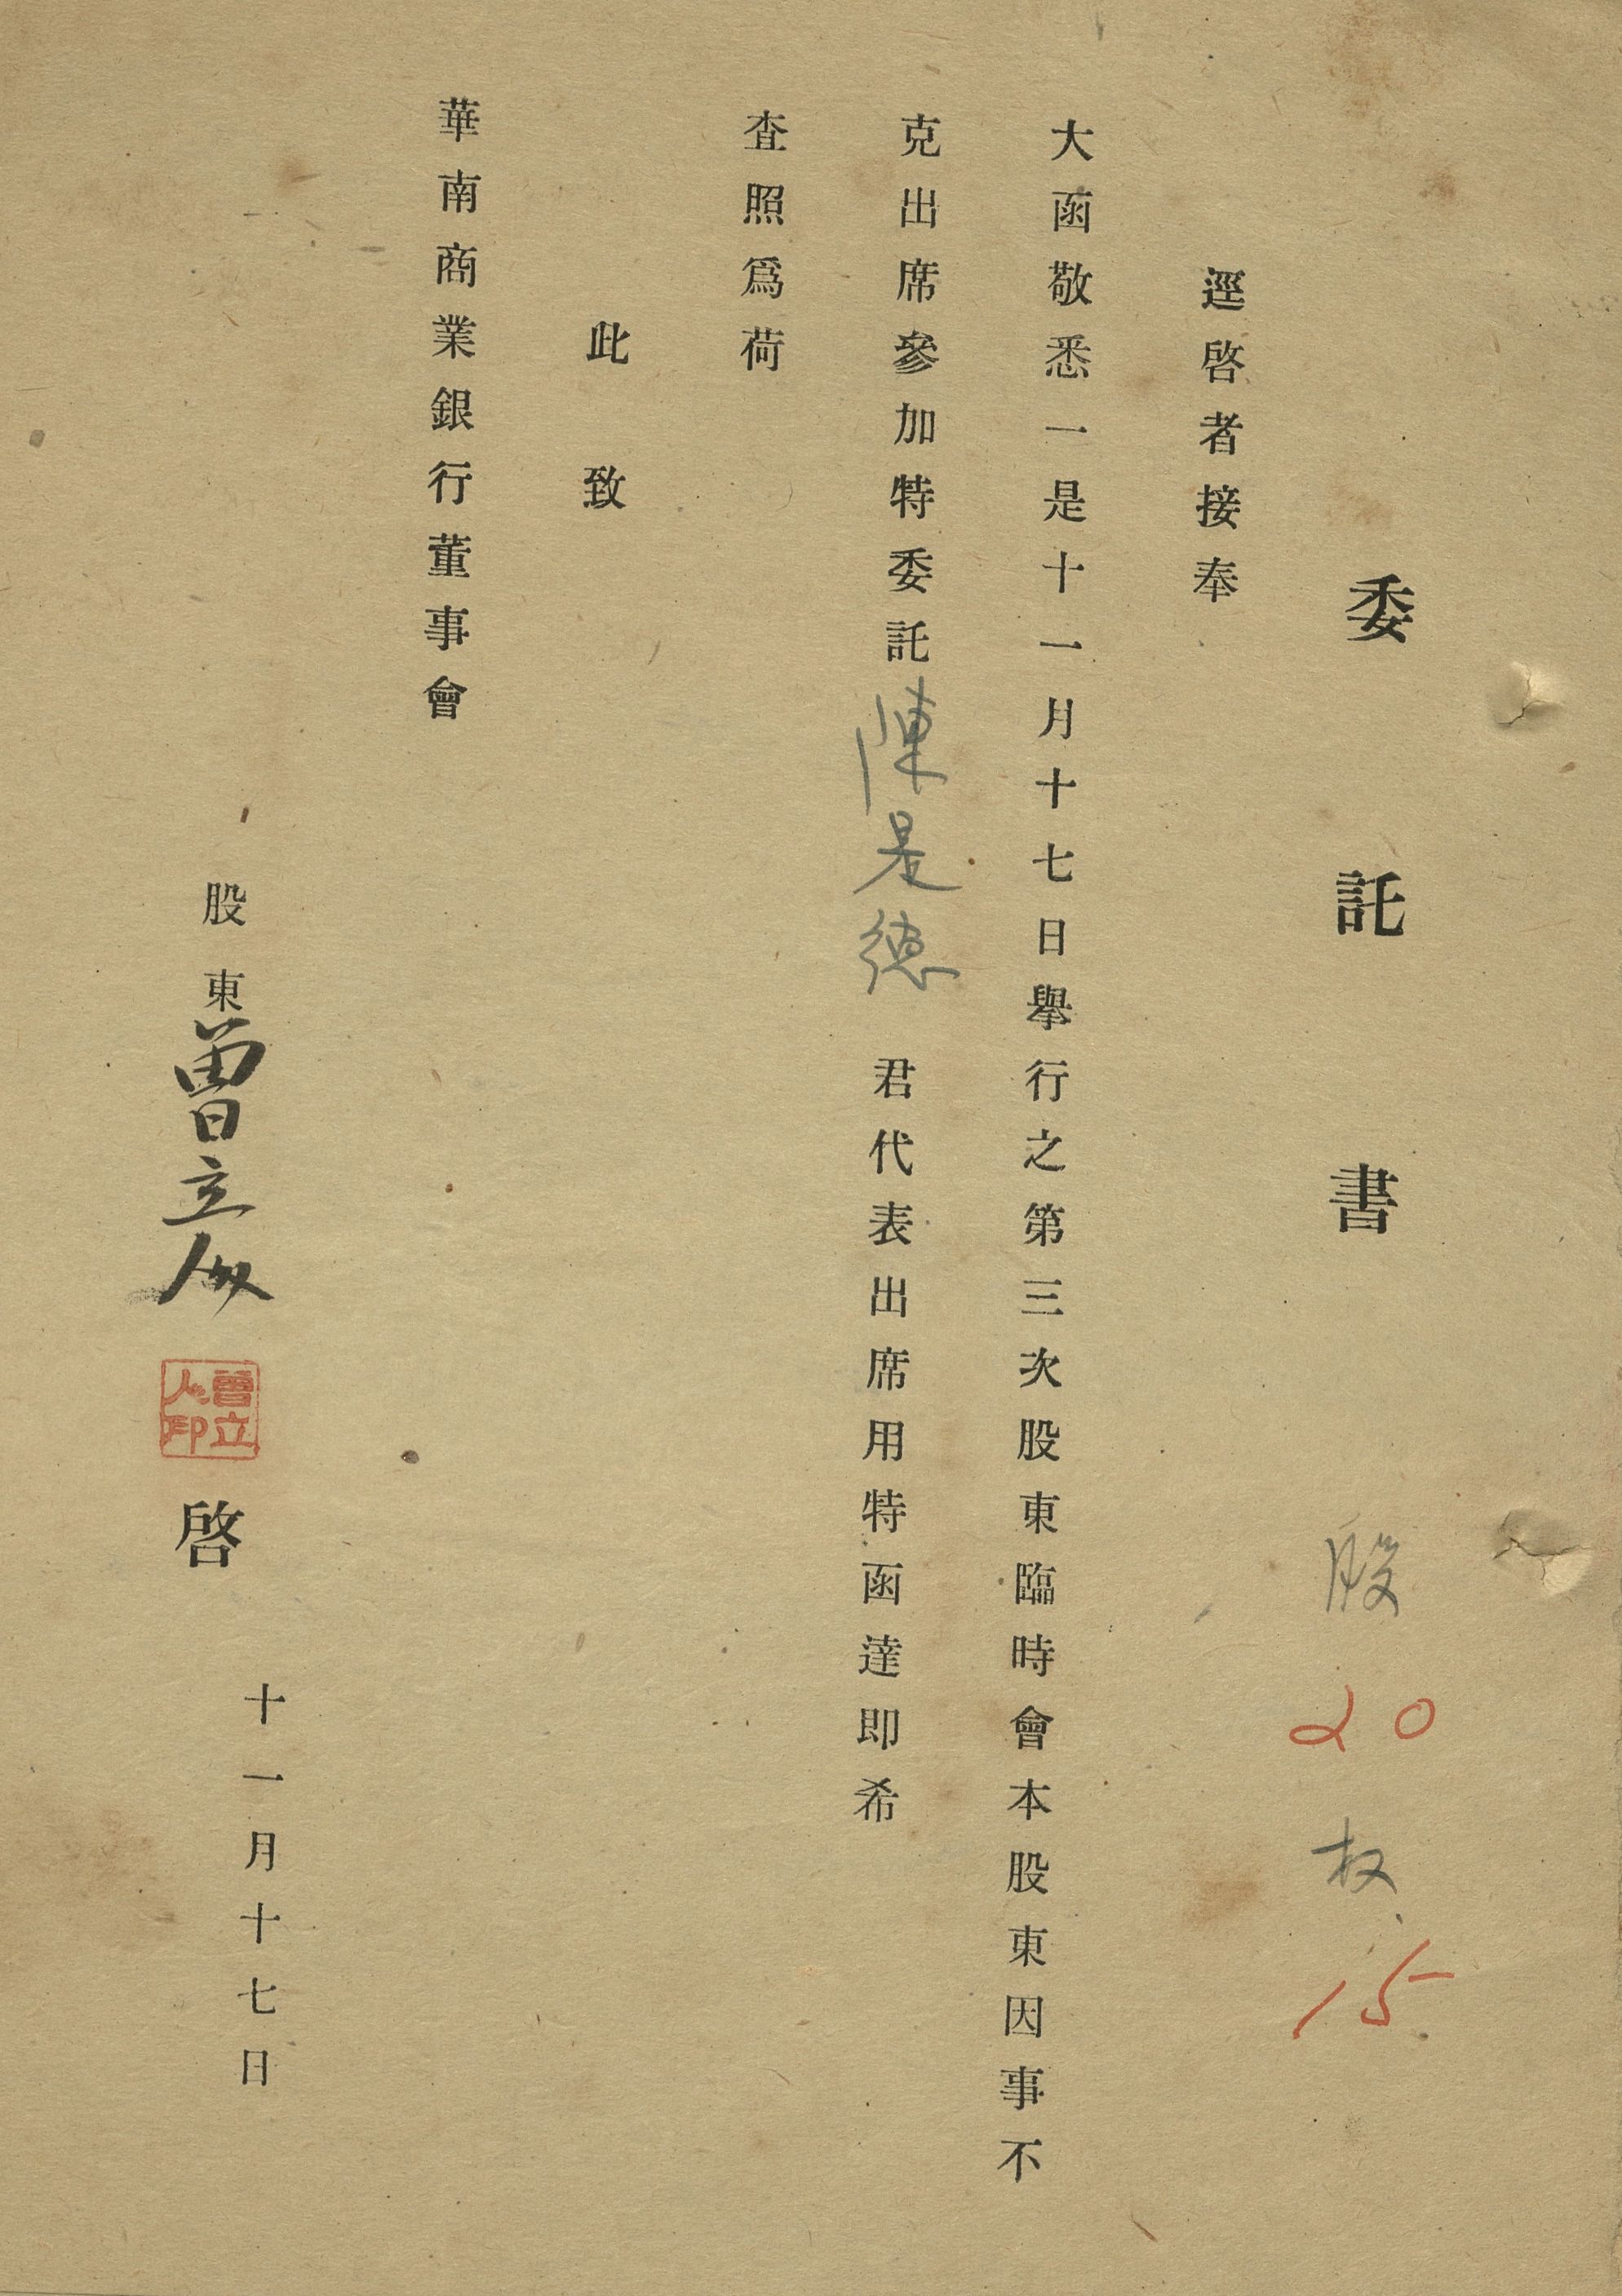 委託書 股 20 权 15
逕啓者接奉
大函敬悉一是十一月十七日舉行之第三次股東臨時會本股東因事不
克出席參加特委託陳是德 君代表出席用特函達即希
查照爲荷
此致
華南商業銀行董事會
股東曾立 啓
十一月十七日